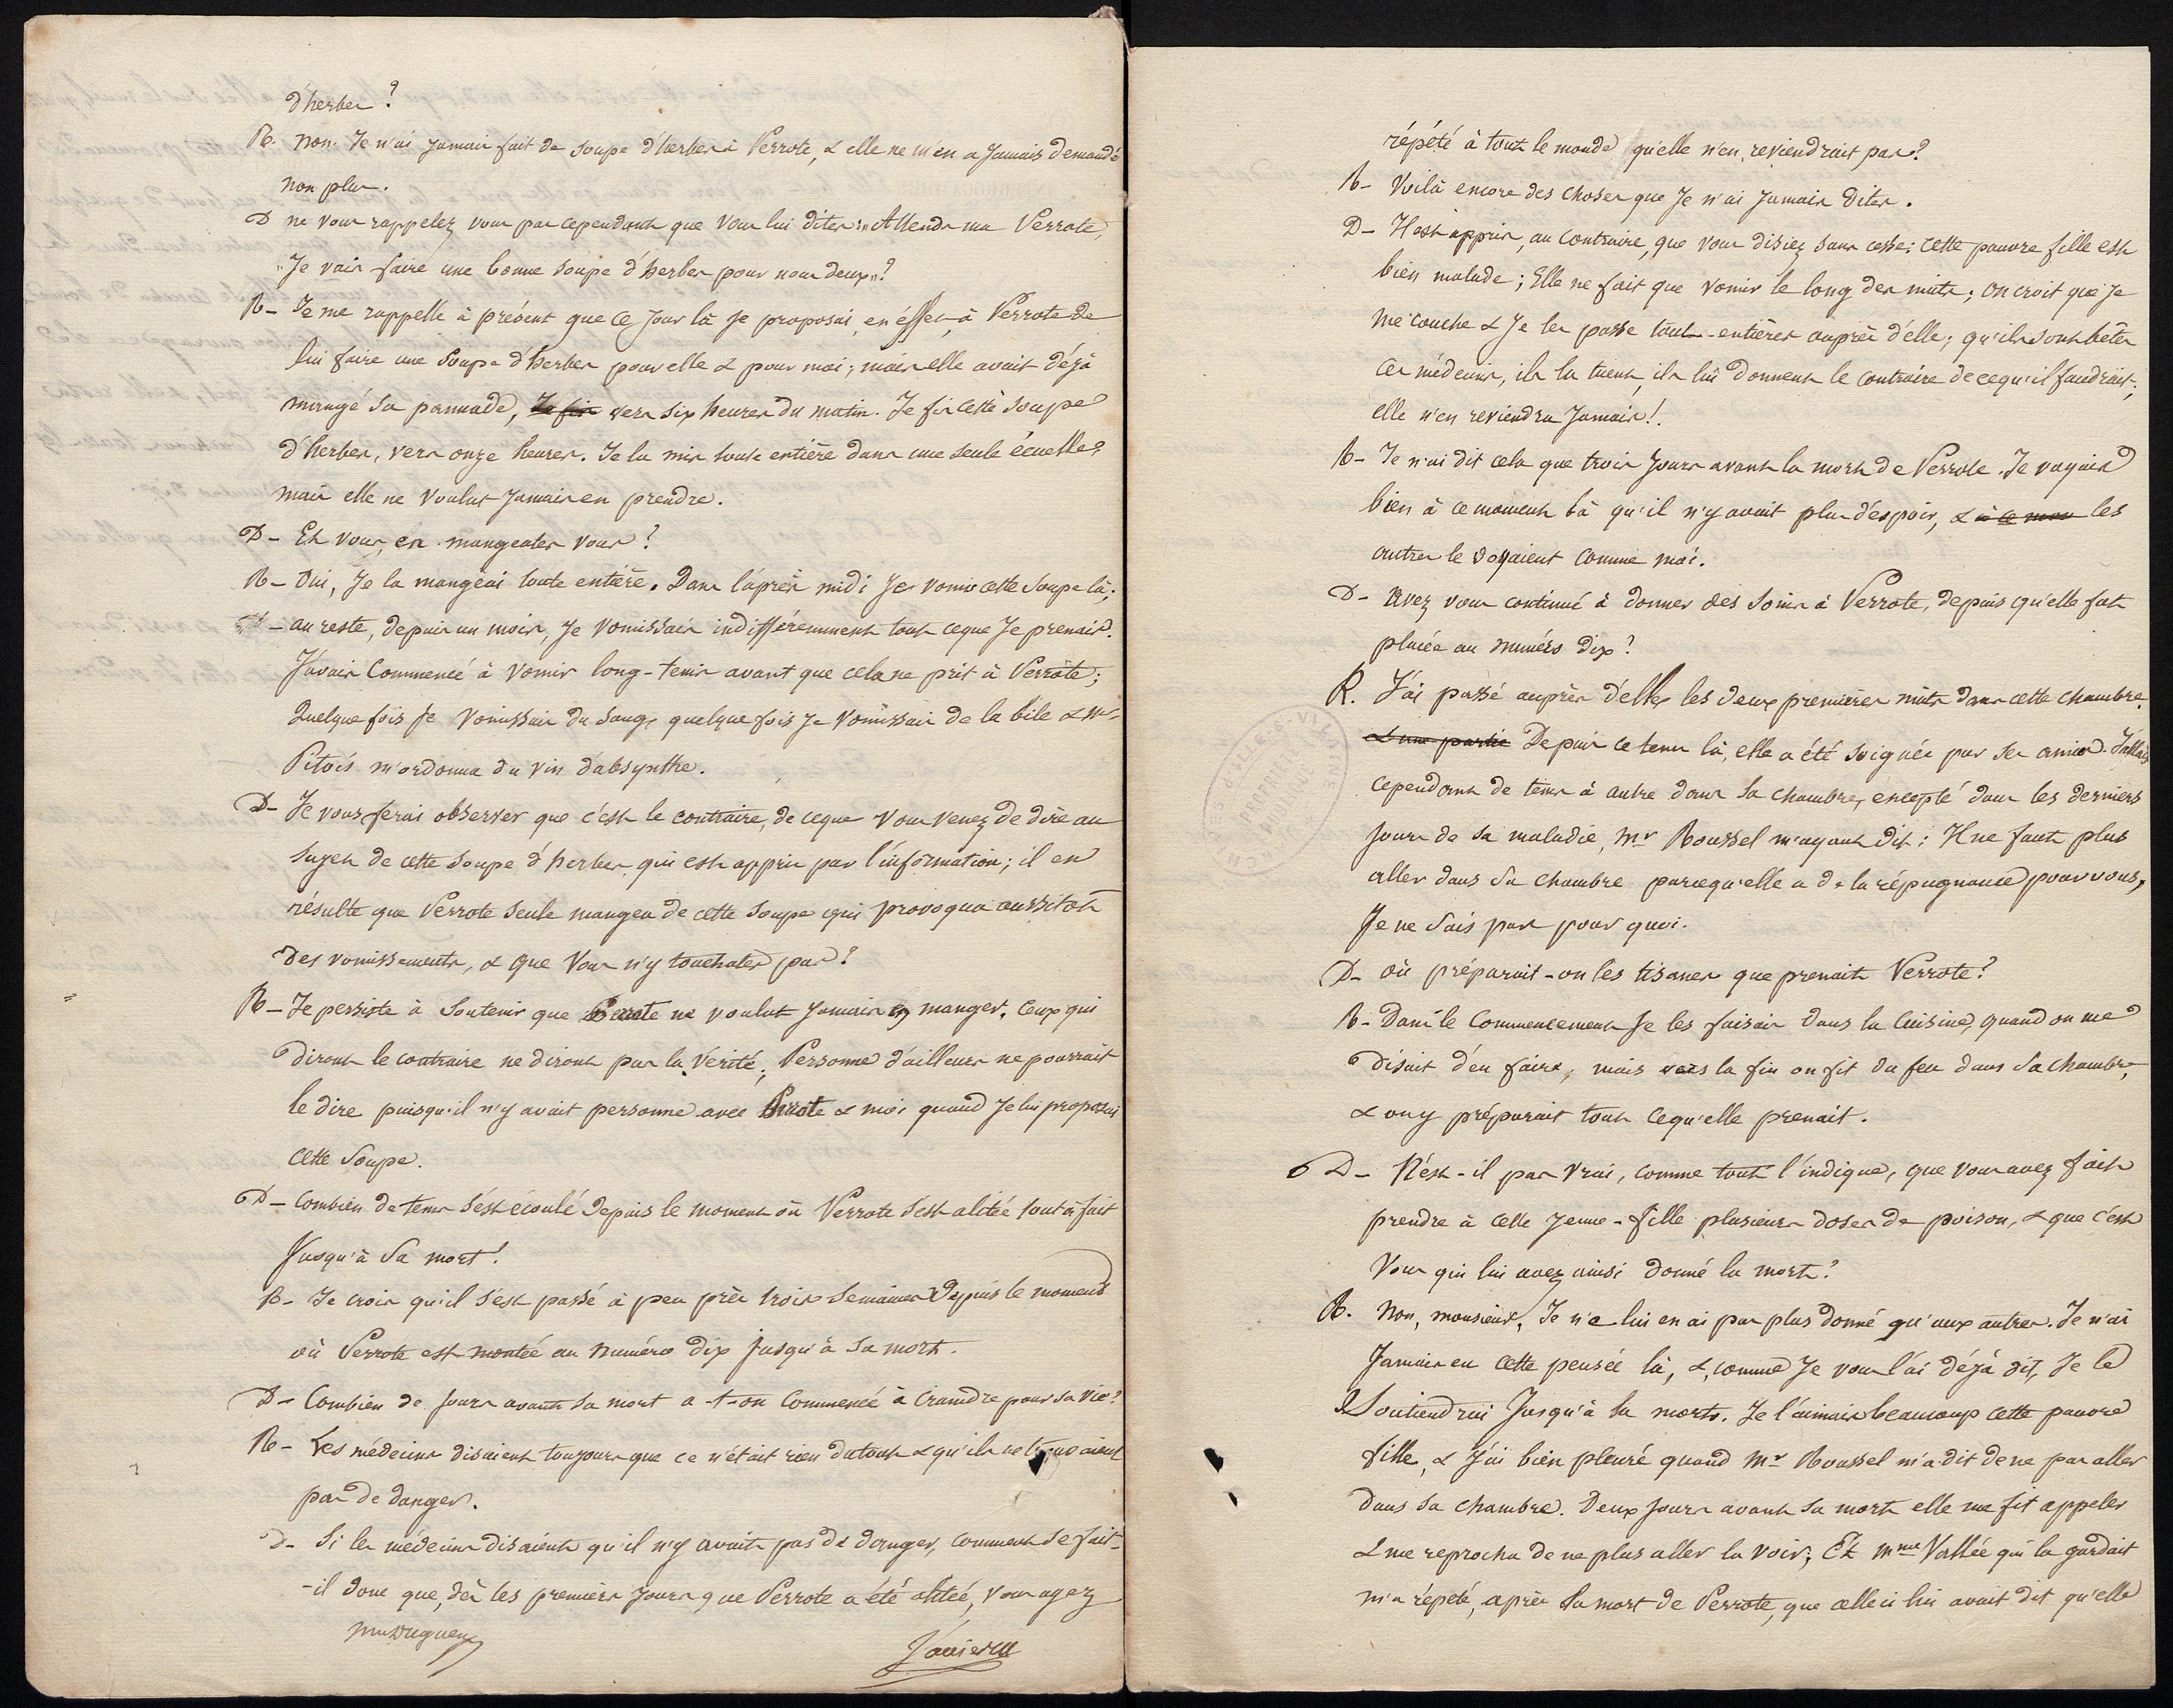 d'herbes?
R. Non. Je n'ai jamais fait de soupe d'herbes à Perrote, & elle ne m'en a jamais demandé
non plus.
D ne vous rappelez vous pas cependant que vous lui dites: "Attends ma Perrote,
"Je vais faire une bonne soupe d'herbes pour nous deux"?
R - Je me rappelle à présent que ce jour là je proposai, en éffet, à Perrote de
lui faire une soupe d'herbes pour elle & pour moi; mais elle avait déjà
mangé sa pannade, Je fis vers six heures du matin. Je fis cette soupe
d'herbes, vers onze heures. Je la mis toute entière dans une seule écuelle;
mais elle ne voulut jamais en prendre.
D - Et vous, en mangeates vous?
R - Oui, Je la mangeai toute entière. Dans l'après midi Je vomis cette soupe là;
- au reste, depuis un mois, Je vomissais indifféremment tout ceque Je prenais.
J'avais commencé à vomir long-tems avant que cela ne prit à Perrote;
Quelque fois je vomissais du sang, quelque fois je vomissais de la bile & Mr
Pitois m'ordonna du vin d'absynthe.
D - Je vous ferai observer que c'est le contraire, de ceque vous venez de dire au
sujet de cette soupe d'herbes, qui est appris par l'information; il en
résulte que Perrote seule mangea de cette soupe qui provoqua aussitôt
des vomissements, & que vous n'y touchates pas?
R - Je persiste à soutenir que Perrote ne voulut jamais en manger. Ceux qui
diront le contraire ne diront pas la vérité; Personne d'ailleurs ne pourrait
le dire puisqu'il n'y avait personne avec Perrote & moi quand Je lui proposai
cette soupe.
D - Combien de tems s'est écoulé depuis le moment où Perrote s'est alitée tout à fait
Jusqu'à sa mort?
R - Je crois qu'il s'est passé à peu près trois semaines depuis le moment
où Perrote est montée au numéro dix jusqu'à sa mort.
D - Combien de jours avant sa mort a-t-on commencé à craindre pour sa vie?
R - Les médecins disaient toujours que ce n'était rien du tout & qu'ils ne trouvaient
pas de danger.
D - Si les médecins disaient qu'il n'y avait pas de danger, comment se fait-
-il donc que, dès les premiers jours que Perrote a été alitée, vous ayez
répété à tout le monde qu'elle n'en reviendrait pas?
R - Voilà encore des choses que Je n'ai jamais dites.
D - Il est appris, au contraire, que vous disiez sans cesse: cette pauvre fille est
bien malade; Elle ne fait que vomir le long des nuits; on croit que Je
me couche & Je les passe tout-entières auprès d'elle; qu'ils sont bêtes
ces médecins, ils la tuent, ils lui donnent le contraire de cequ'il faudrait;
elle n'en reviendra Jamais!.
R - Je n'ai dit cela que trois jours avant la mort de Perrote. Je voyais
bien à ce moment là qu'il n'y avait plus d'espoir, & à ce mom les
autres le voyaient comme moi.
D - Avez vous continué à donner des soins à Perrote, depuis qu'elle fut
placée au numéro dix?
R. J'ai passé auprès d'elle les deux premières nuits dans cette chambre.
& une partie Depuis ce tems là, elle a été soignée par ses amies. J'allais
cependant de tems à autre dans sa chambre, excepté dans les derniers
jours de sa maladie, Mr Roussel m'ayant dit: Il ne faut plus
aller dans sa chambre parcequ'elle a de la répugnance pour vous,
Je ne sais pas pour quoi.
D - où préparait-on les tisanes que prenait Perrote?
R - Dans le commencement Je les faisais dans la cuisine, quand on me
disait d'en faire, mais vers la fin on fit du feu dans sa chambre,
& on y préparait tout cequ'elle prenait.
D - N'est-il pas vrai, comme tout l'indique, que vous avez fait
prendre à cette jeune-fille plusieurs doses de poison, & que c'est
vous qui lui avez ainsi donné la mort?
R. Non, monsieur, Je ne lui en ai pas plus donné qu'aux autres. Je n'ai
Jamais eu cette pensée là, &, comme Je vous l'ai déjà dit, Je le
Soutiendrai Jusqu'à la mort. Je l'aimais beaucoup cette pauvre
fille, & J'ai bien pleuré quand Mr Roussel m'a dit de ne pas aller
dans sa chambre. Deux jours avant sa mort elle me fit appeler
& me reprocha de ne plus aller la voir; Et Mme Vallée qui la gardait
m'a répété, après la mort de Perrote, que celle ci lui avait dit qu'elle